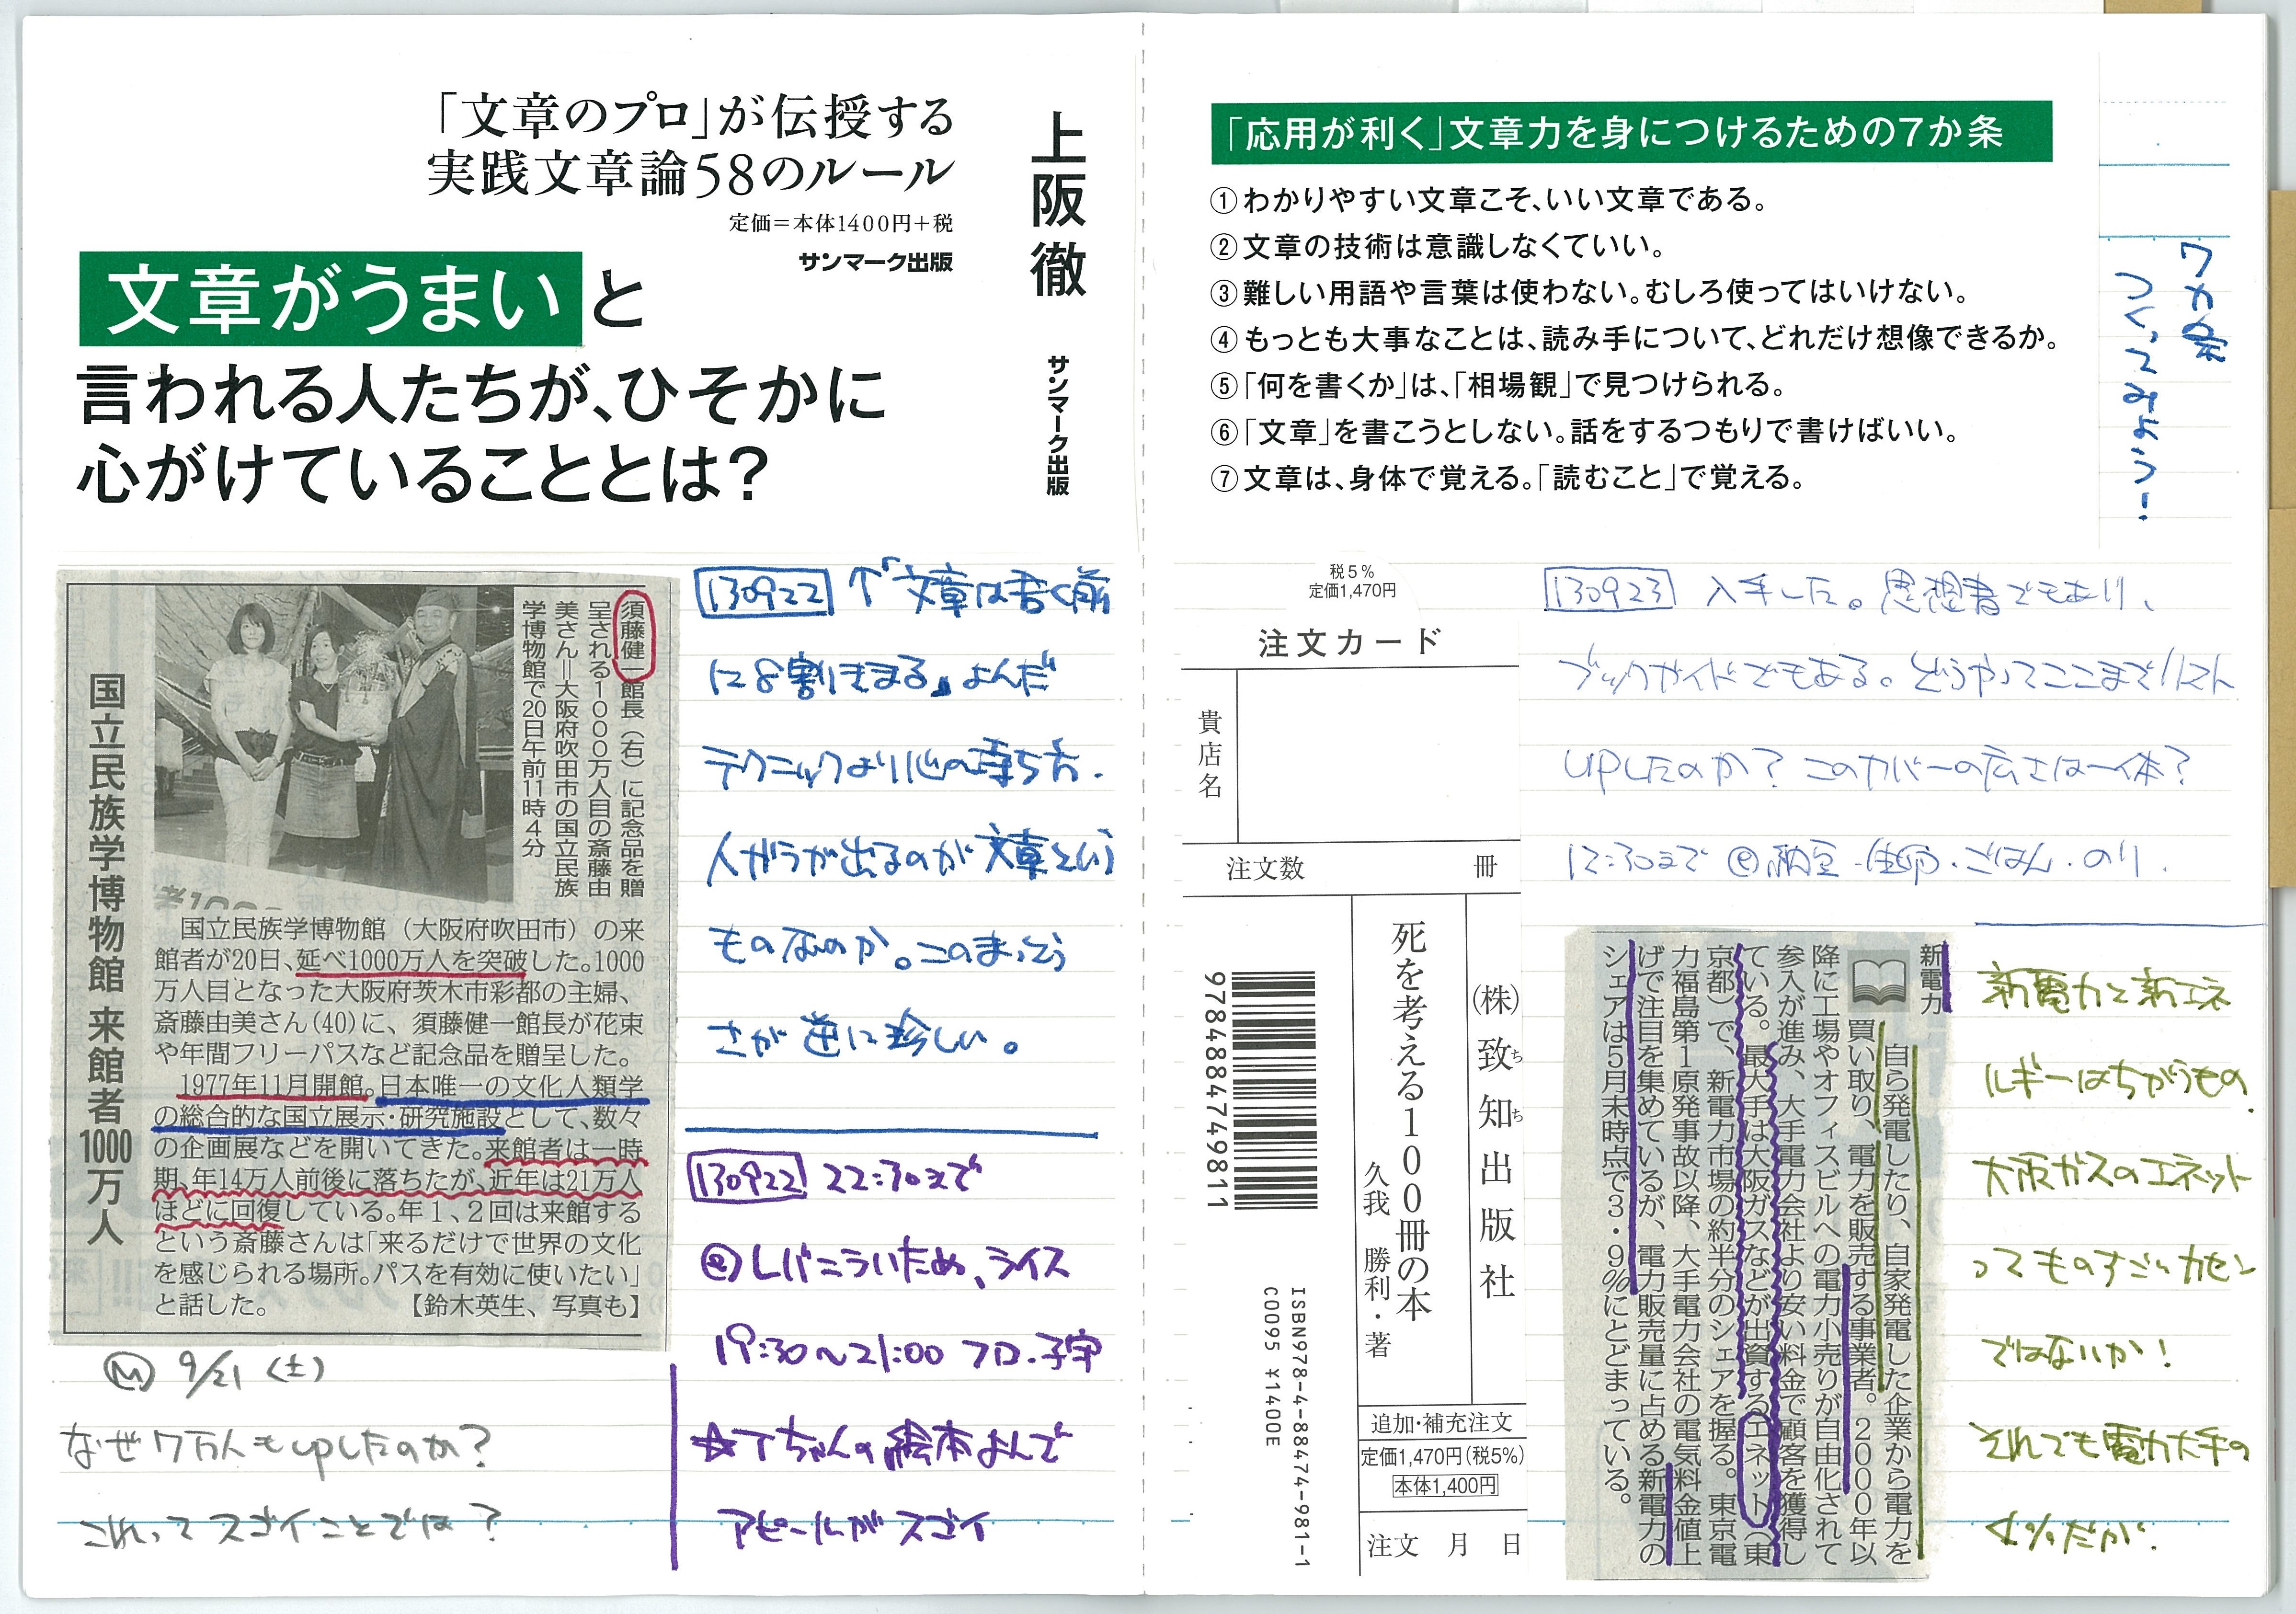 「文章のプロ」が伝授する
実践文章論58のルール
定価=本体1400円+税
サンマーク出版
文章がうまいと
言われる人たちが、ひそかに
心がけていることとは?
上阪 徹
サンマーク出版
須藤健一館長(右)に記念品を贈
呈される1000万人目の斎藤由
美さん=大阪府吹田市の国立民族
学博物館で20日午前11時4分
国立民族学博物館 来館者1000万人
国立民族学博物館(大阪府吹田市)の来
館者が20日、延べ1000万人を突破した。1000
万人目となった大阪府茨木市彩都の主婦、
斎藤由美さん(40)に、須藤健一館長が花束
や年間フリーパスなど記念品を贈呈した。
1977年11月開館。日本唯一の文化人類学
の総合的な国立展示・研究施設として、数々
の企画展などを開いてきた。来館者は一時
期、年14万人前後に落ちたが、近年は21万人
ほどに回復している。年1、2回は来館する
という斎藤さんは「来るだけで世界の文化
を感じられる場所。パスを有効に使いたい」
と話した。 【鈴木英生、写真も】
M 9/21(土)
なぜ7万人もupしたのか?
これってスゴイことでは?
130922 ↑「文章は書く前
に8割きまる」よんだ
テクニックより心の持ち方.
人がらが出るのが文章という
ものなのか。このまっとう
さが逆に珍しい。
130922 22:30まで
レバニラいため、ライス
19:30〜21:00 フロ.子守
☆Tちゃんの絵本よんで
アピールがスゴイ
「応用が利く」文章力を身につけるための7か条
①わかりやすい文章こそ、いい文章である。
②文章の技術は意識しなくていい。
③難しい用語や言葉は使わない。むしろ使ってはいけない。
④もっとも大事なことは、読み手について、どれだけ想像できるか。
⑤「何を書くか」は、「相場観」で見つけられる。
⑥「文章」を書こうとしない。話をするつもりで書けばいい。
⑦文章は、身体で覚える。「読むこと」で覚える。
7カ条
つくってみよう!
税5%
定価1,470円
注文カード
貴店名
注文数 冊
(株)致知出版社
ち ち
死を考える100冊の本
久我 勝利・著
9784884749811
ISBN978-4-88474-981-1
C0095 ¥1400E
追加・補充注文
定価1,470円(税5%)
本体1,400円
注文 月 日
130923 入手した。思想書でもあり、
ブックガイドでもある。どうやってここまでリスト
UPしたのか? このカバーの広さは一体?
12:30まで 納豆・生卵・ごはん・のり.
新電力
自ら発電したり、自家発電した企業から電力を
買い取り、電力を販売する事業者。2000年以
降に工場やオフィスビルへの電力小売りが自由化されて
参入が進み、大手電力会社より安い料金で顧客を獲得し
ている。最大手は大阪ガスなどが出資するエネット(東
京都)で、新電力市場の約半分のシェアを握る。東京電
力福島第1原発事故以降、大手電力会社の電気料金値上
げで注目を集めているが、電力販売量に占める新電力の
シェアは5月末時点で3・9%にとどまっている。
新電力と新エネ
ルギーはちがうもの.
大阪ガスのエネット
ってものすごいカセン
ではないか!
それでも電力大手の
4%だか.